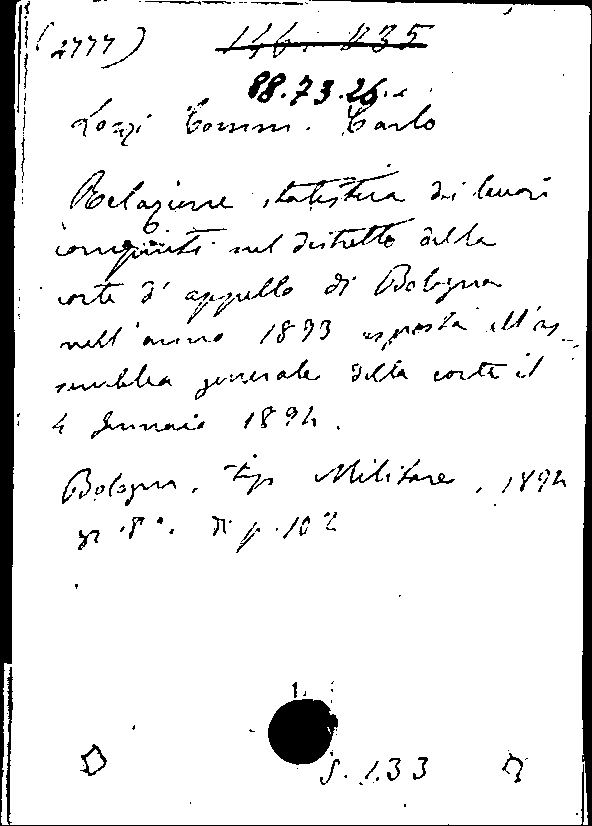 (2777) 146. B35
88.73.26.
Lozzi Comm. Carlo
Relazione statistica dei lavori
compiuti nel distretto della
corte d'appello di Bologna
nell'anno 1893 esposta all'as-
semblea generale della corte il
4 Gennaio 1894.
Bologna, tip Militare, 1894
in 8°. di p. 102
S. 133